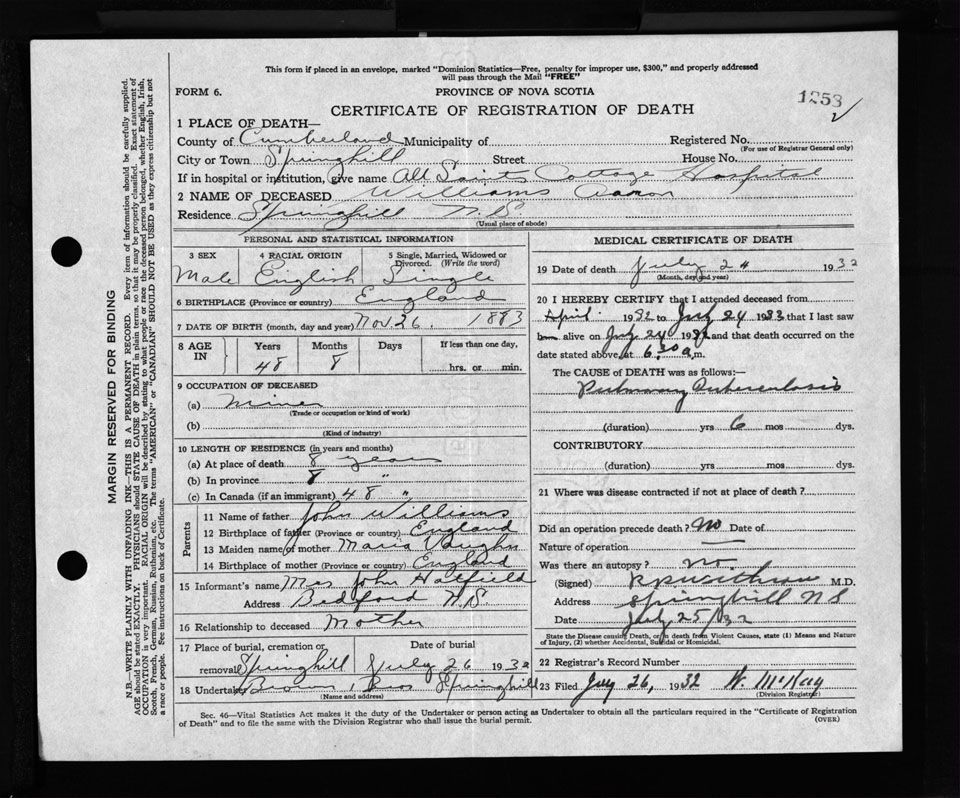 This form if placed in an envelope, marked "Dominion Statistics—Free, penalty for improper use, $300," and properly addressed
will pass through the Mail "FREE"
FORM 6.
PROVINCE OF NOVA SCOTIA
1253
2
CERTIFICATE OF REGISTRATION OF DEATH
1 PLACE OF DEATH—
County of Cumberland Municipality of Registered No.
(For use of Registrar General only)
City or Town Springhill Street House No.
If in hospital or institution, give name All Saints Cottage Hospital
2 NAME OF DECEASED Williams Aaron
Residence Springhill N.S.
(Usual place of abode)
PERSONAL AND STATISTICAL INFORMATION
3 SEX 4 RACIAL ORIGIN 5 Single, Married, Widowed or Divorced. (Write the word)
Male English Single
6 BIRTHPLACE (Province or country) England
7 DATE OF BIRTH (month, day and year) Nov. 26. 1883
8 AGE IN Years Months Days If less than one day,
48 8 hrs. or min.
9 OCCUPATION OF DECEASED
(a) Miner
(Trade or occupation or kind of work)
(b)
(Kind of industry)
10 LENGTH OF RESIDENCE (in years and months)
(a) At place of death 8 years
(b) In province 8 "
(c) In Canada (if an immigrant) 48 "
Parents
11 Name of father John Williams
12 Birthplace of father (Province or country) England
13 Maiden name of mother Maria Vaughn
14 Birthplace of mother (Province or country) England
15 Informant's name Mrs John Hatfield
Address Bedford N.S
16 Relationship to deceased Mother
17 Place of burial, cremation or removal Date of burial
Springhill July 26 1932
18 Undertaker Brown Bros Springhill
(Name and address)
MEDICAL CERTIFICATE OF DEATH
19 Date of death July 24 1932
(Month, day and year)
20 I HEREBY CERTIFY that I attended deceased from
April 1932 to July 24 1933 that I last saw
him alive on July 24 1932 and that death occurred on the
date stated above, at 6.30 a.m.
The CAUSE of DEATH was as follows:—
Pulmonary Tuberculosis
(duration) yrs 6 mos dys.
CONTRIBUTORY
(duration) yrs mos dys.
21 Where was disease contracted if not at place of death?
Did an operation precede death? No Date of
Nature of operation —
Was there an autopsy? No.
(Signed) M.D.
Address Springhill N S
Date July 25/32
State the Disease causing Death, or, in death from Violent Causes, state (1) Means and Nature
of Injury, (2) whether Accidental, Suicidal or Homicidal.
22 Registrar's Record Number
23 Filed July 26, 1932 W. McKay
(Division Registrar)
Sec. 46—Vital Statistics Act makes it the duty of the Undertaker or person acting as Undertaker to obtain all the particulars required in the "Certificate of Registration
of Death" and to file the same with the Division Registrar who shall issue the burial permit.
(OVER)
MARGIN RESERVED FOR BINDING
N.B.—WRITE PLAINLY WITH UNFADING INK—THIS IS A PERMANENT RECORD. Every item of information should be carefully supplied.
AGE should be stated EXACTLY. PHYSICIANS should STATE CAUSE OF DEATH in plain terms, so that it may be properly classified. Exact statement of
OCCUPATION is very important. RACIAL ORIGIN will be described by stating to what people or race the deceased person belonged, whether English, Irish,
Scotch, French, German, Russian, Ruthenian, etc. The terms "AMERICAN" or "CANADIAN" SHOULD NOT BE USED as they express citizenship but not
a race or people. See instructions on back of Certificate.